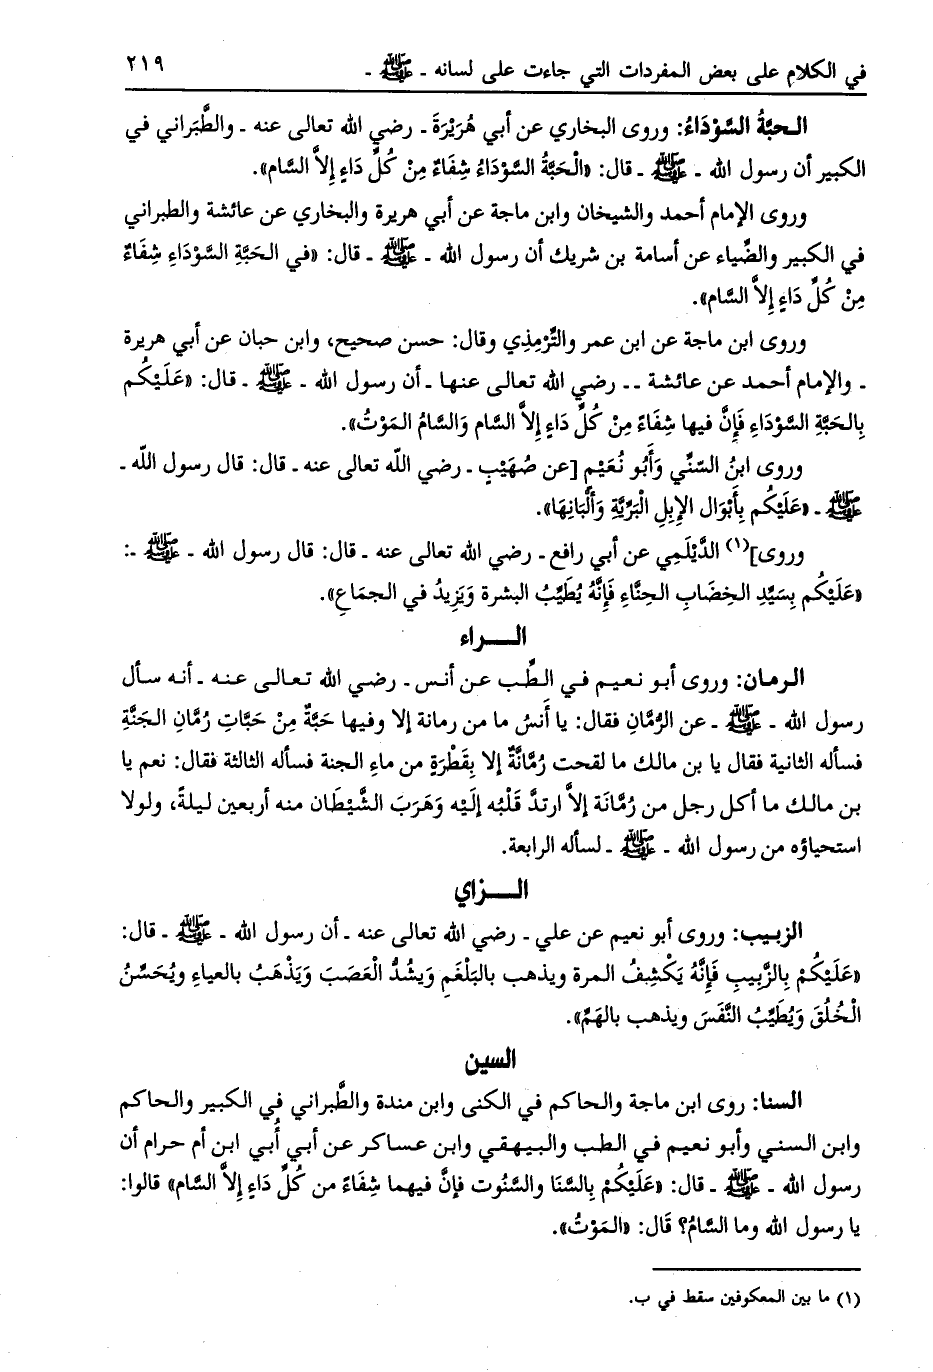 في الكلام على بعض المفردات التي جاءت على لسانه ـ ﷺ ـ ٢١٩
الحبَّةُ السَّوْدَاءُ: وروى البخاري عن أبي هُرَيْرَةَ ـ رضي الله تعالى عنه ـ والطَّبَراني في
الكبير أن رسول الله ـ ﷺ ـ قال: «الْحَبَّةُ السَّوْدَاءُ شِفَاءٌ مِنْ كُلِّ دَاءٍ إِلاَّ السَّام».
وروى الإمام أحمد والشيخان وابن ماجة عن أبي هريرة والبخاري عن عائشة والطبراني
في الكبير والضِّياء عن أسامة بن شريك أن رسول الله ـ ﷺ ـ قال: «في الحَبَّةِ السَّوْدَاءِ شِفَاءٌ
مِنْ كُلِّ دَاءٍ إِلاَّ السَّام».
وروى ابن ماجة عن ابن عمر والتِّرْمِذِي وقال: حسن صحيح، وابن حبان عن أبي هريرة
ـ والإمام أحمد عن عائشة ـ ـ رضي الله تعالى عنها ـ أن رسول الله ـ ﷺ ـ قال: «عَلَيْكُم
بِالحَبَّةِ السَّوْدَاءِ فَإِنَّ فيها شِفَاءً مِنْ كُلِّ دَاءٍ إِلاَّ السَّام وَالسَّامُ المَوْتُ».
وروى ابنُ السّنِّي وَأَبُو نُعَيْمٍ [عن صُهَيْبٍ ـ رضي اللّه تعالى عنه ـ قال: قال رسول اللّه ـ
ﷺ ـ «عَلَيْكُم بِأَبْوَالِ الإبِلِ الْبَرِّيَّةِ وَأَلْبَانِهَا».
وروى](١) الدَّيْلَمِي عن أبي رافع ـ رضي الله تعالى عنه ـ قال: قال رسول الله ـ ﷺ ـ:
«عَلَيْكُم بِسَيِّدِ الخِضَابِ الحِنَّاءِ فَإِنَّهُ يُطَيِّبُ البشرة وَيَزِيدُ في الجمَاعِ».
الـــراء
الرمان: وروى أبو نعيم في الطِّب عن أنس ـ رضي الله تعالى عنه ـ أنه سأل
رسول الله ـ ﷺ ـ عن الرُّمَّانِ فقال: يا أَنَسُ ما من رمانة إلا وفيها حَبَّةٌ مِنْ حَبَّاتِ رُمَّانِ الجَنَّةِ
فسأله الثانية فقال يا بن مالك ما لقحت رُمَّانَّةٌ إلا بِقَطْرَةٍ من ماءِ الجنة فسأله الثالثة فقال: نعم يا
بن مالك ما أكل رجل من رُمَّانَة إلاَّ ارتدَّ قَلْبُه إلَيْه وَهَرَبَ الشَّيْطَان منه أربعين ليلةً، ولولا
استحياؤه من رسول الله ـ ﷺ ـ لسأله الرابعة.
الـــزاي
الزبيب: وروى أبو نعيم عن علي ـ رضي الله تعالى عنه ـ أن رسول الله ـ ﷺ ـ قال:
«عَلَيْكُمْ بِالزَّبِيبِ فَإِنَّهُ يَكْشِفُ المرة ويذهب بالبَلْغَمِ وَيشُدُّ الْعَصَبَ وَيَذْهَبُ بالعياءِ ويُحَسِّنُ
الْخُلُقَ وَيُطَيِّبُ النَّفَسَ ويذهب بالهَمِّ».
السين
السنا: روى ابن ماجة والحاكم في الكنى وابن مندة والطَّبراني في الكبير والحاكم
وابن السني وأبو نعيم في الطب والبيهقي وابن عساكر عن أبي أُبي ابن أم حرام أن
رسول الله ـ ﷺ ـ قال: «عَلَيْكُمْ بِالسَّنَا والسَّنُوت فإنَّ فيهما شِفَاءً من كُلِّ دَاءٍ إلاَّ السَّام» قالوا:
يا رسول الله وما السَّامُ؟ قَال: «المَوْتُ».
(١) ما بين المعكوفين سقط في ب.